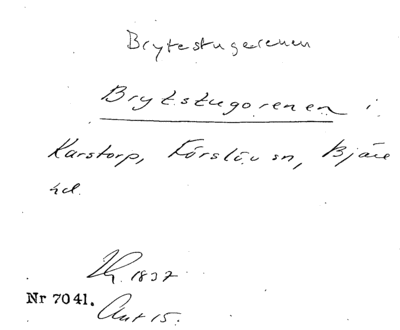 Brytestugerenen
Brytstugorenen i
Karstorp, Förslöv sn, Bjäre
hd.
1837
Nr 7041. Akt 15.